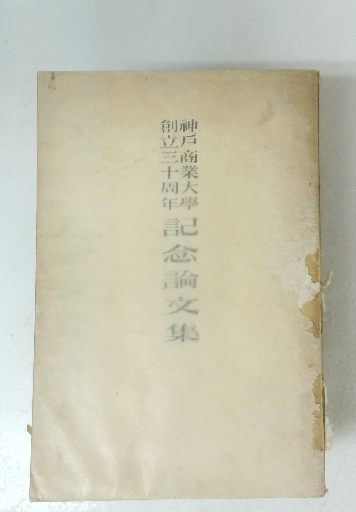 神戶商業大學
創立三十周年
記念論文集